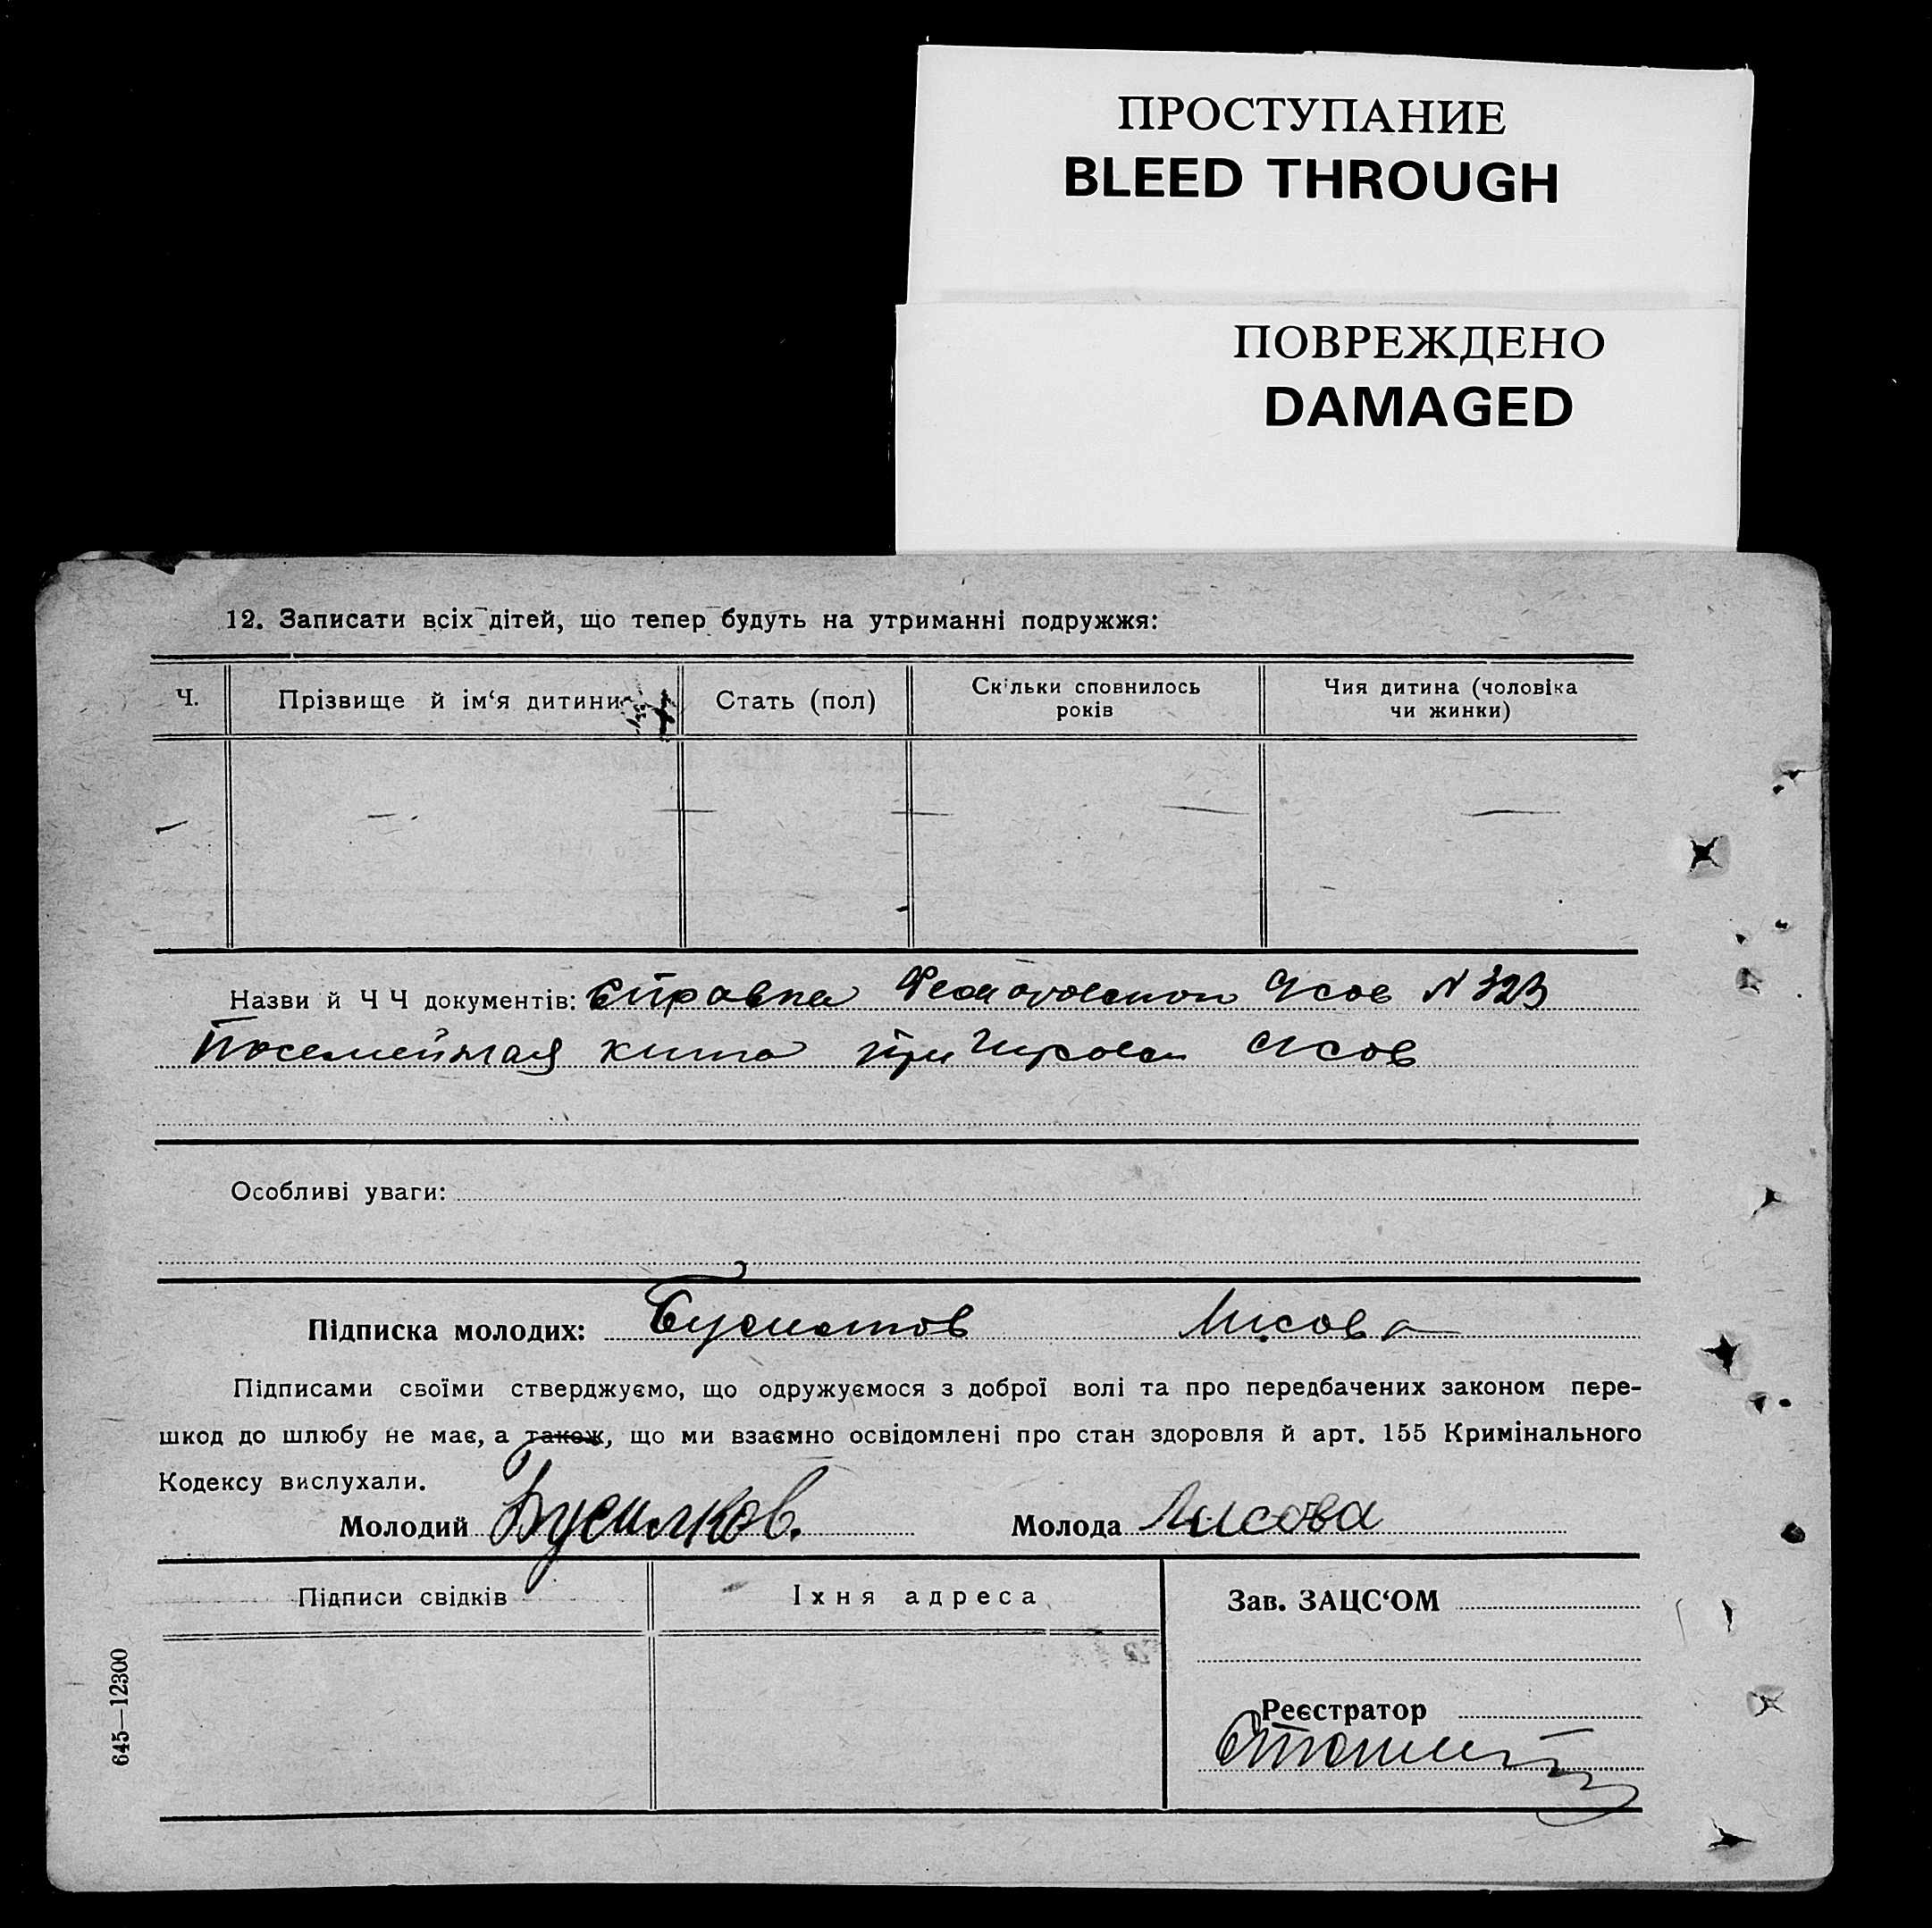 ПРОСТУПАНИЕ
BLEED THROUGH
ПОВРЕЖДЕНО
DAMAGED
12. Записати всіх дітей, що тепер будуть на утриманні подружжя:
Ч.
Прізвище й ім‘я дитини
Стать (пол)
Скільки сповнилось
років
Чия дитина (чоловіка
чи жинки)
Назви й Ч Ч документів: Справка N 323
Посемейная книга при
Особливі уваги:
Підписка молодих: Лисова
Підписами своїми стверджуємо, що одружуємося з доброї волі та про передбачених законом пере-
шкод до шлюбу не має, а також, що ми взаємно освідомлені про стан здоровля й арт. 155 Кримінального
Кодексу вислухали.
Молодий Бусилков. Молода Лисова
Підписи свідків
Іхня адреса
Зав. ЗАЦС‘ОМ
Реєстратор
645—12300